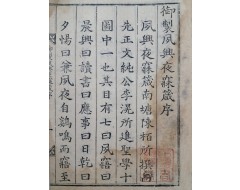 御製夙興夜寐箴序
夙興夜寐箴南塘陳栢所撰
先正文純公李滉所進聖學十
圖中一也其目有七曰夙寤曰
晨興曰讀書曰應事曰日乾曰
夕惕曰兼夙夜自鷄鳴而寤至